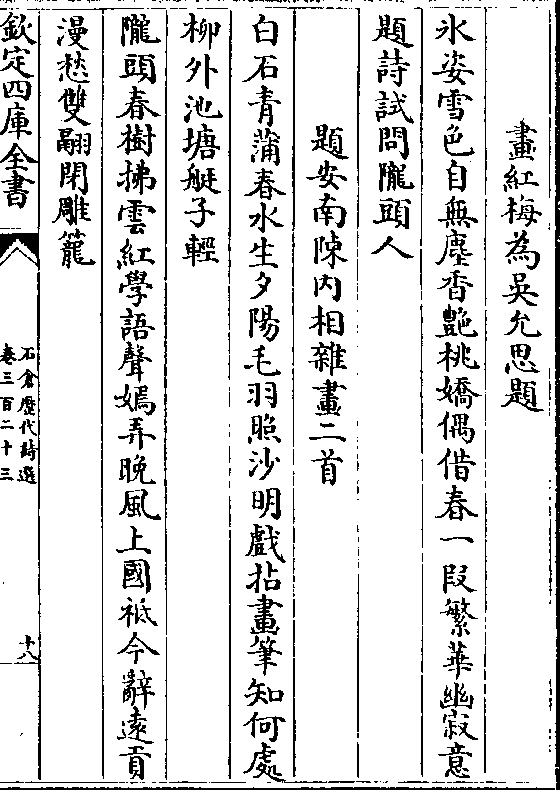 畫紅梅為吳允思題
氷姿雪色自無塵香艶桃嬌偶借春一叚繁華幽寂意
題詩試問隴頭人
題安南陳内相雜畫二首
白石青蒲春水生夕陽毛羽照沙明戲拈畫筆知何處
柳外池塘艇子輕
隴頭春樹拂雲紅學語聲嫣弄晩風上國祗今辭逺貢
漫愁雙翮閉雕籠
欽定四庫全書
石倉歴代詩選
卷三百二十三
十八